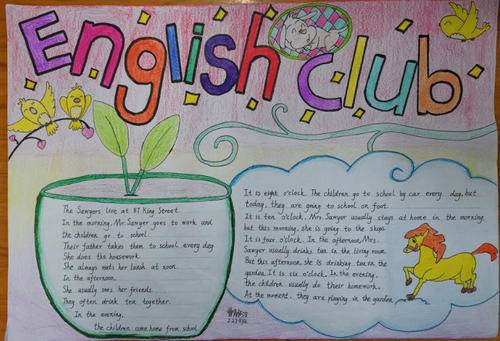 English Club
The Sawyers live at 87 King Street
In the morning, Mr. Sawyer goes to work and
the children go to school.
Their father takes them to school every day
She does the housework.
She always eats her lunch at noon.
In the afternoon,
She usually sees her friends.
They often drink tea together.
In the evening,
the children come home from school
It is eight o'clock. The children go to school by car every day, but
today, they are going to school on foot.
It is ten o'clock. Mrs. Sawyer usually stays at home in the morning
but this morning, she is going to the shops
It is four o'clock. In the afternoon, Mrs.
Sawyer usually drinks tea in the living room.
But this afternoon, she is drinking tea in the
garden. It is six o'clock. In the evening,
the children usually do their homework.
At the moment, they are playing in the garden